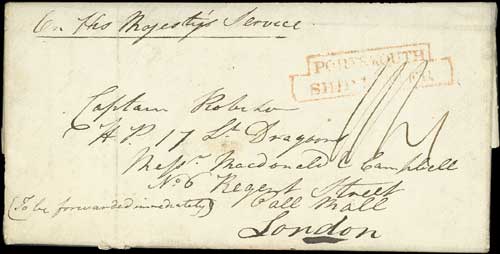 On His Majesty's Service
PORTSMOUTH
SHIP LETTER
Captain
H.P. 17 Lt. Dragoons
Messrs. Macdonald & Campbell
No. 6 Regent Street
Pall Mall
(To be forwarded immediately)
London